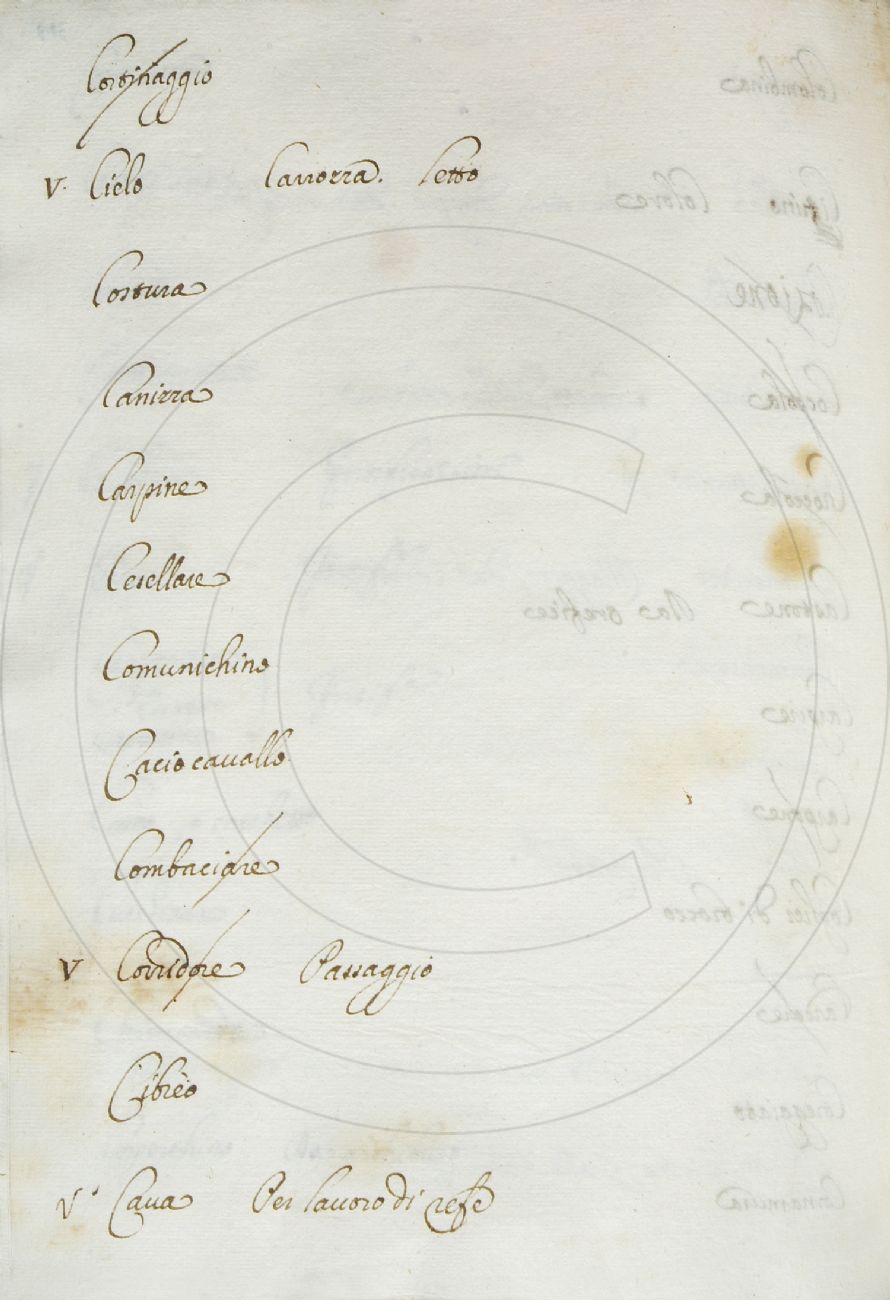 Cortinaggio
V. Cielo Carrozza. Letto
Costura
Canizza
Carpine
Cesellare
Comunichino
Caciocauallo
Combaciare
V Corridore Passaggio
Cibrèo
V. Caua Per lauoro di refe